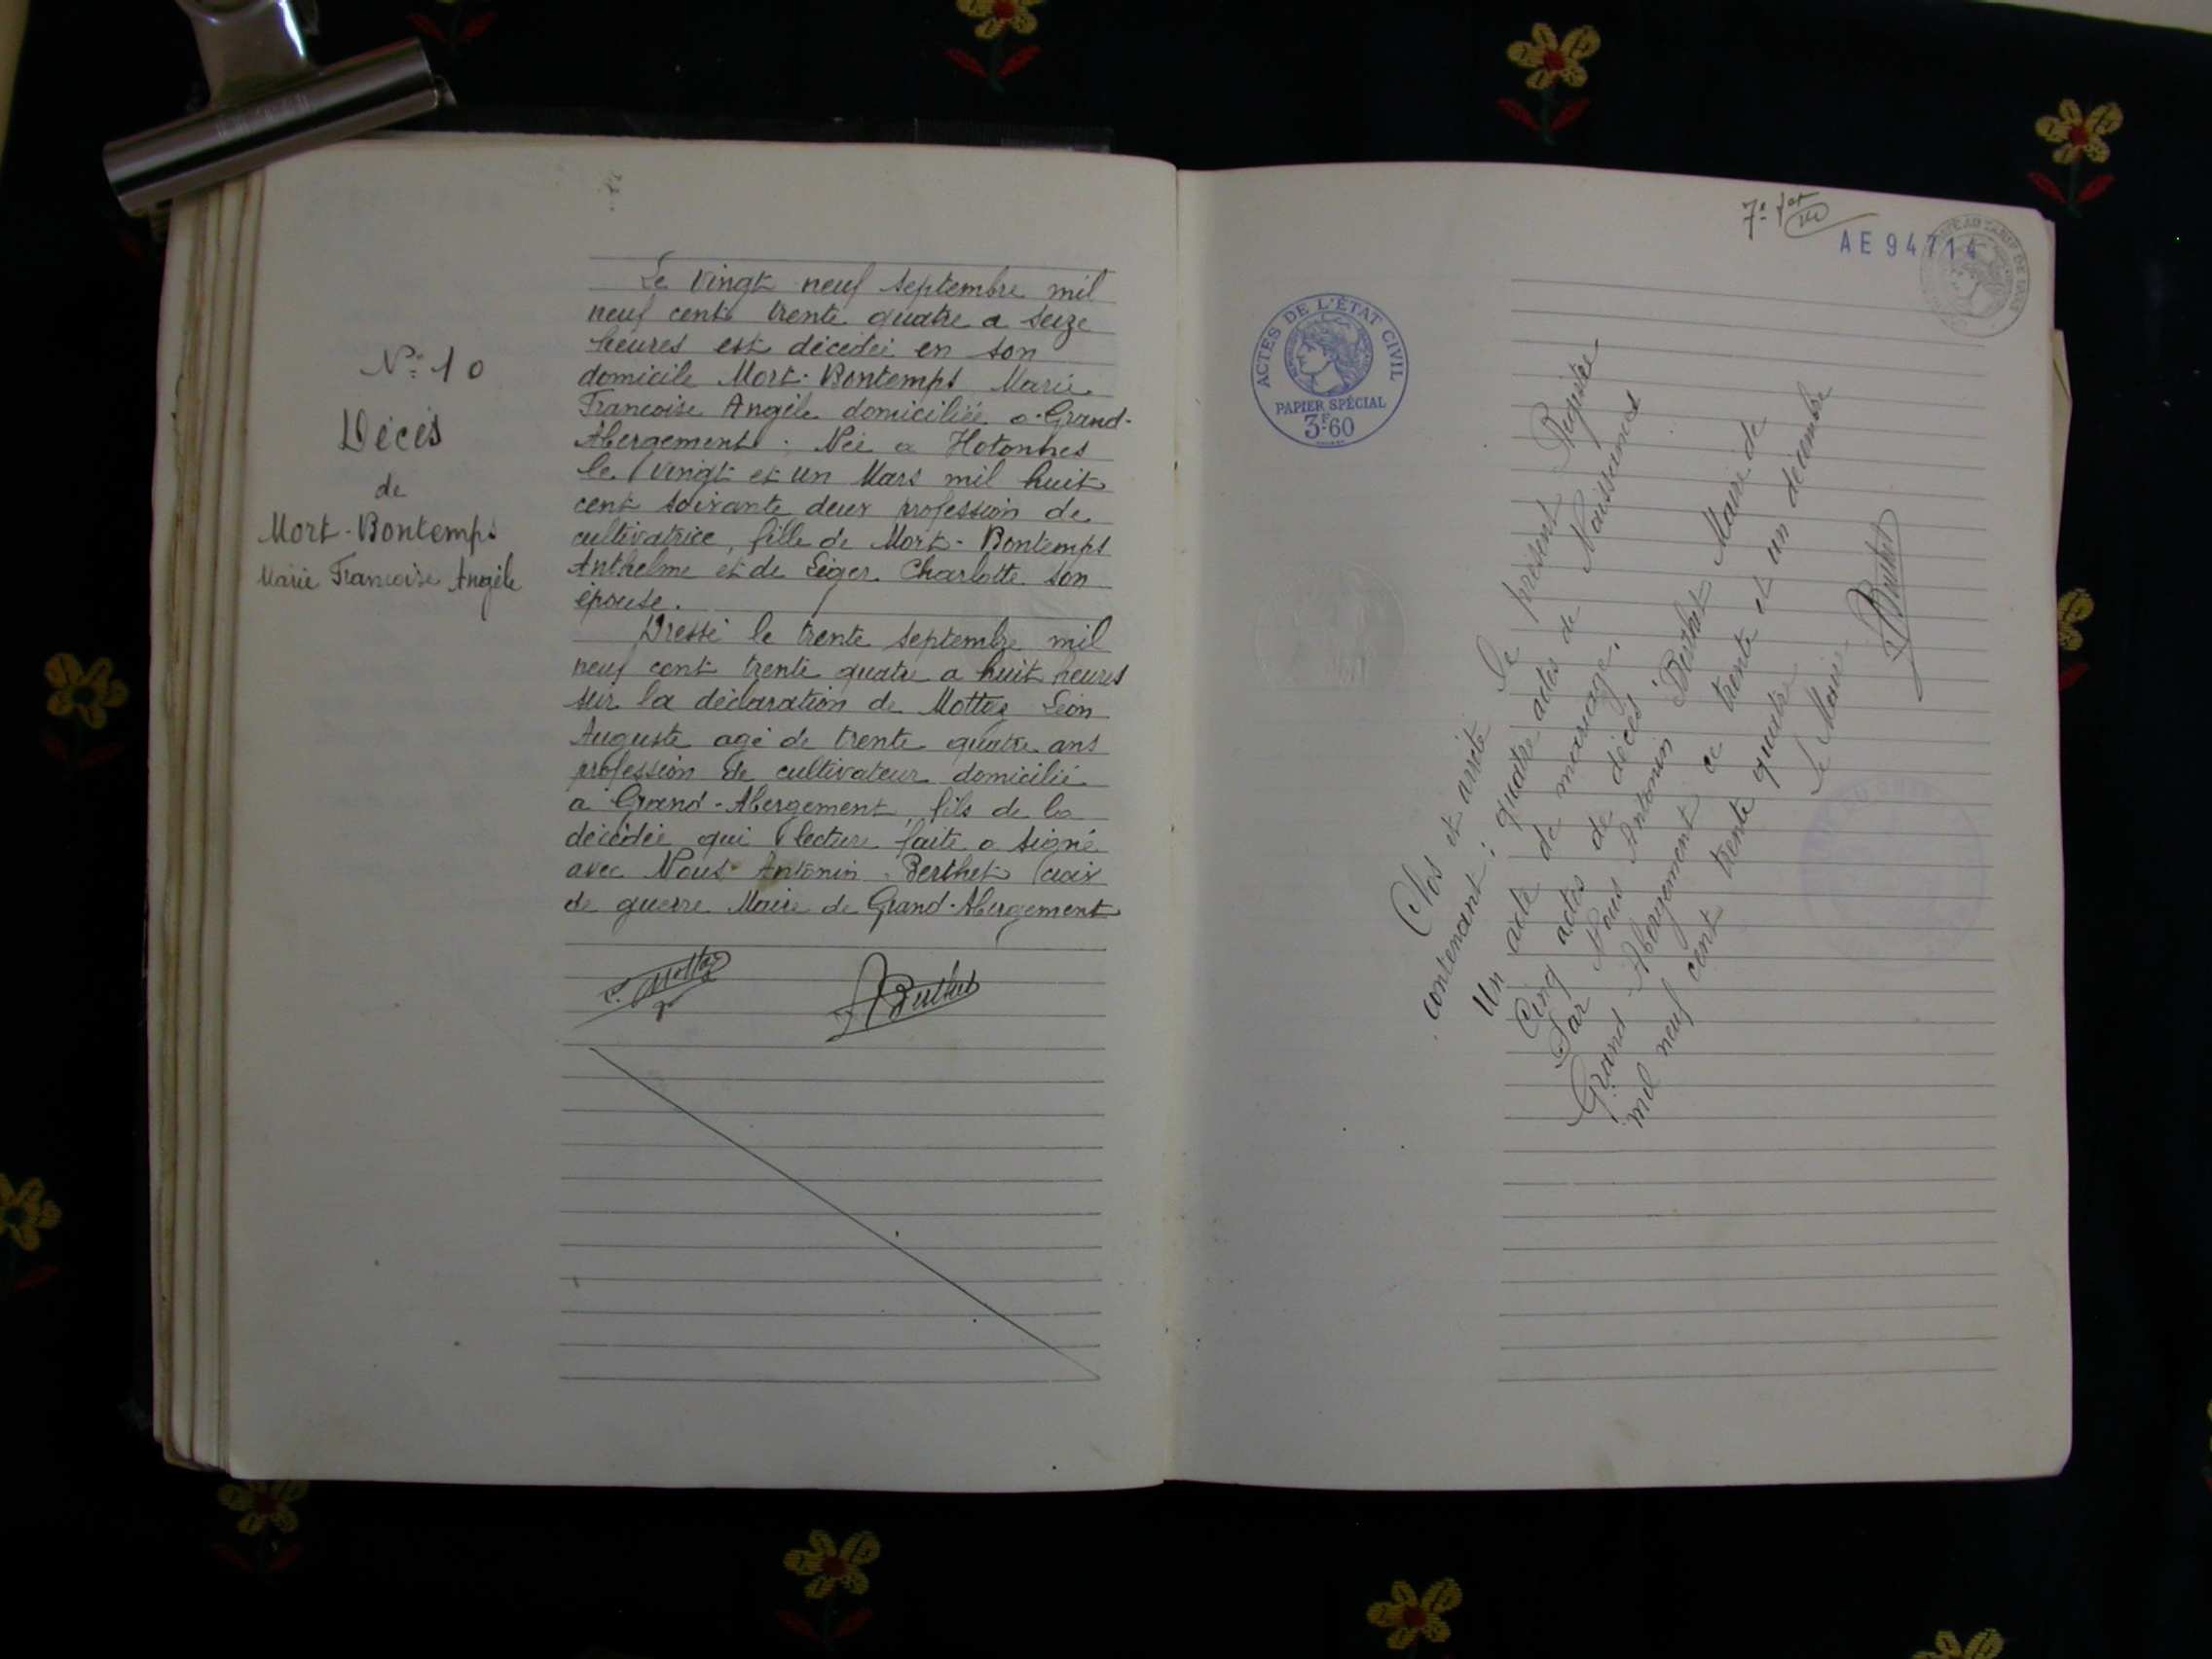 N° 10
Décès
de
Mort-Bontemps
Marie Francoise Angèle
Le vingt neuf septembre mil
neuf cent trente quatre a seize
heures est décédée en son
domicile Mort-Bontemps Marie
Francoise Angèle domiciliée a Grand-
Abergement. Née a Hotonnes
le vingt et un Mars mil huit
cent soixante deux profession de
cultivatrice, fille de Mort-Bontemps
Anthelme et de Léger Charlotte son
épouse.
Dressé le trente septembre mil
neuf cent trente quatre a huit heures
sur la déclaration de Mottes Léon
Auguste agé de trente quatre ans
profession de cultivateur domicilié
a Grand-Abergement, fils de la
décédée qui lecture faite a signé
avec Nous Antonin Berthet Croix
de guerre Maire de Grand-Abergement
ABerthet
7e
AE 94714
ACTES DE L'ÉTAT CIVIL
PAPIER SPÉCIAL
3F60
Clos et arrêté le présent Registre
contenant: quatre actes de Naissances
Un acte de mariage.
Cinq actes de décès
Par Nous Antonin Berthet Maire de
Grand-Abergement ce trente et un décembre
mil neuf cent trente quatre
Le Maire
ABerthet